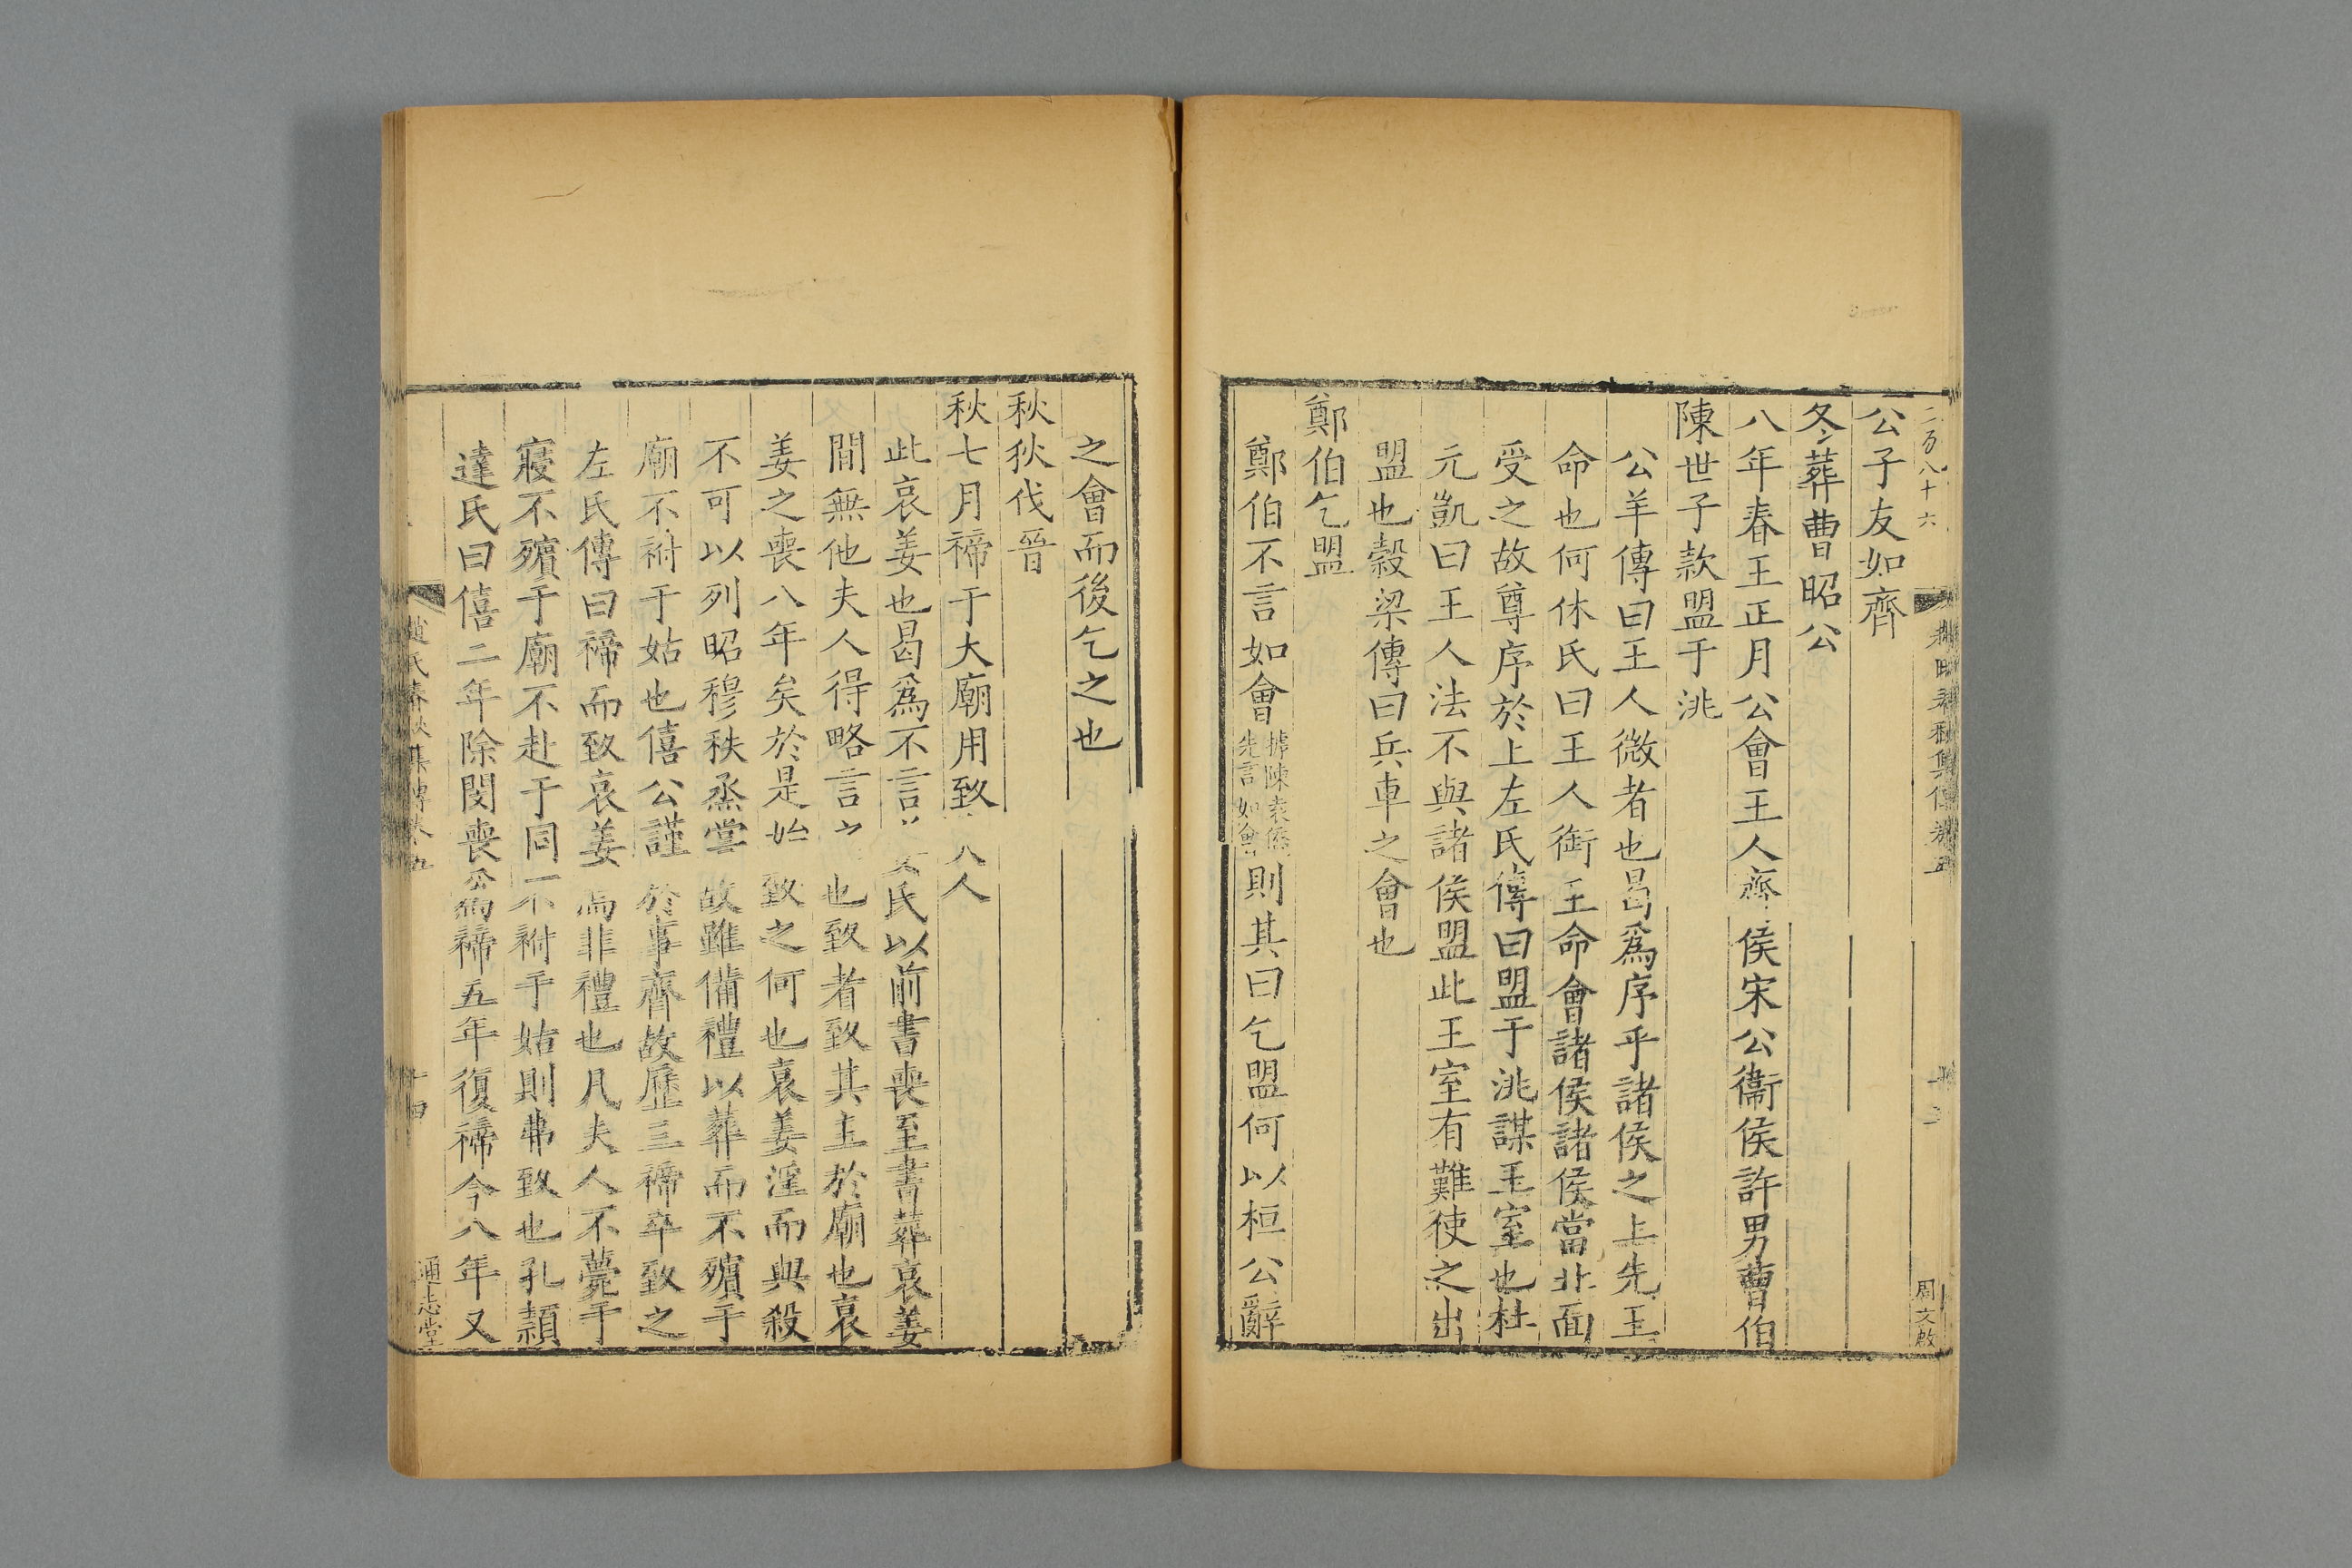 二百八十六
周文啟
公子友如齊
冬葬曹昭公
八年春王正月公會王人齊侯宋公衞侯許男曹伯
陳世子款盟于洮
公羊傳曰王人微者也曷爲序乎諸侯之上先王
命也何休氏曰王人銜王命會諸侯諸侯當北面
受之故尊序於上左氏傳曰盟于洮謀王室也杜
元凱曰王人法不與諸侯盟此王室有難使之出
盟也穀梁傳曰兵車之會也
鄭伯乞盟
鄭伯不言如會據陳袁僑先言如會則其曰乞盟何以桓公辭
之會而後乞之也
秋狄伐晉
秋七月禘于大廟用致人
此哀姜也曷爲不言氏以前書喪至書葬哀姜
間無他夫人得略言之也致者致其主於廟也哀
姜之喪八年矣於是始致之何也哀姜淫而與殺
不可以列昭穆秩烝嘗故雖備禮以葬而不殯于
廟不祔于姑也僖公謹於事齊故歷三禘卒致之
左氏傳曰禘而致哀姜焉非禮也凡夫人不薨于
寢不殯于廟不赴于同不祔于姑則弗致也孔頴
達氏曰僖二年除閔喪爲禘五年復禘今八年又
春秋集傳卷五
十四
通志堂